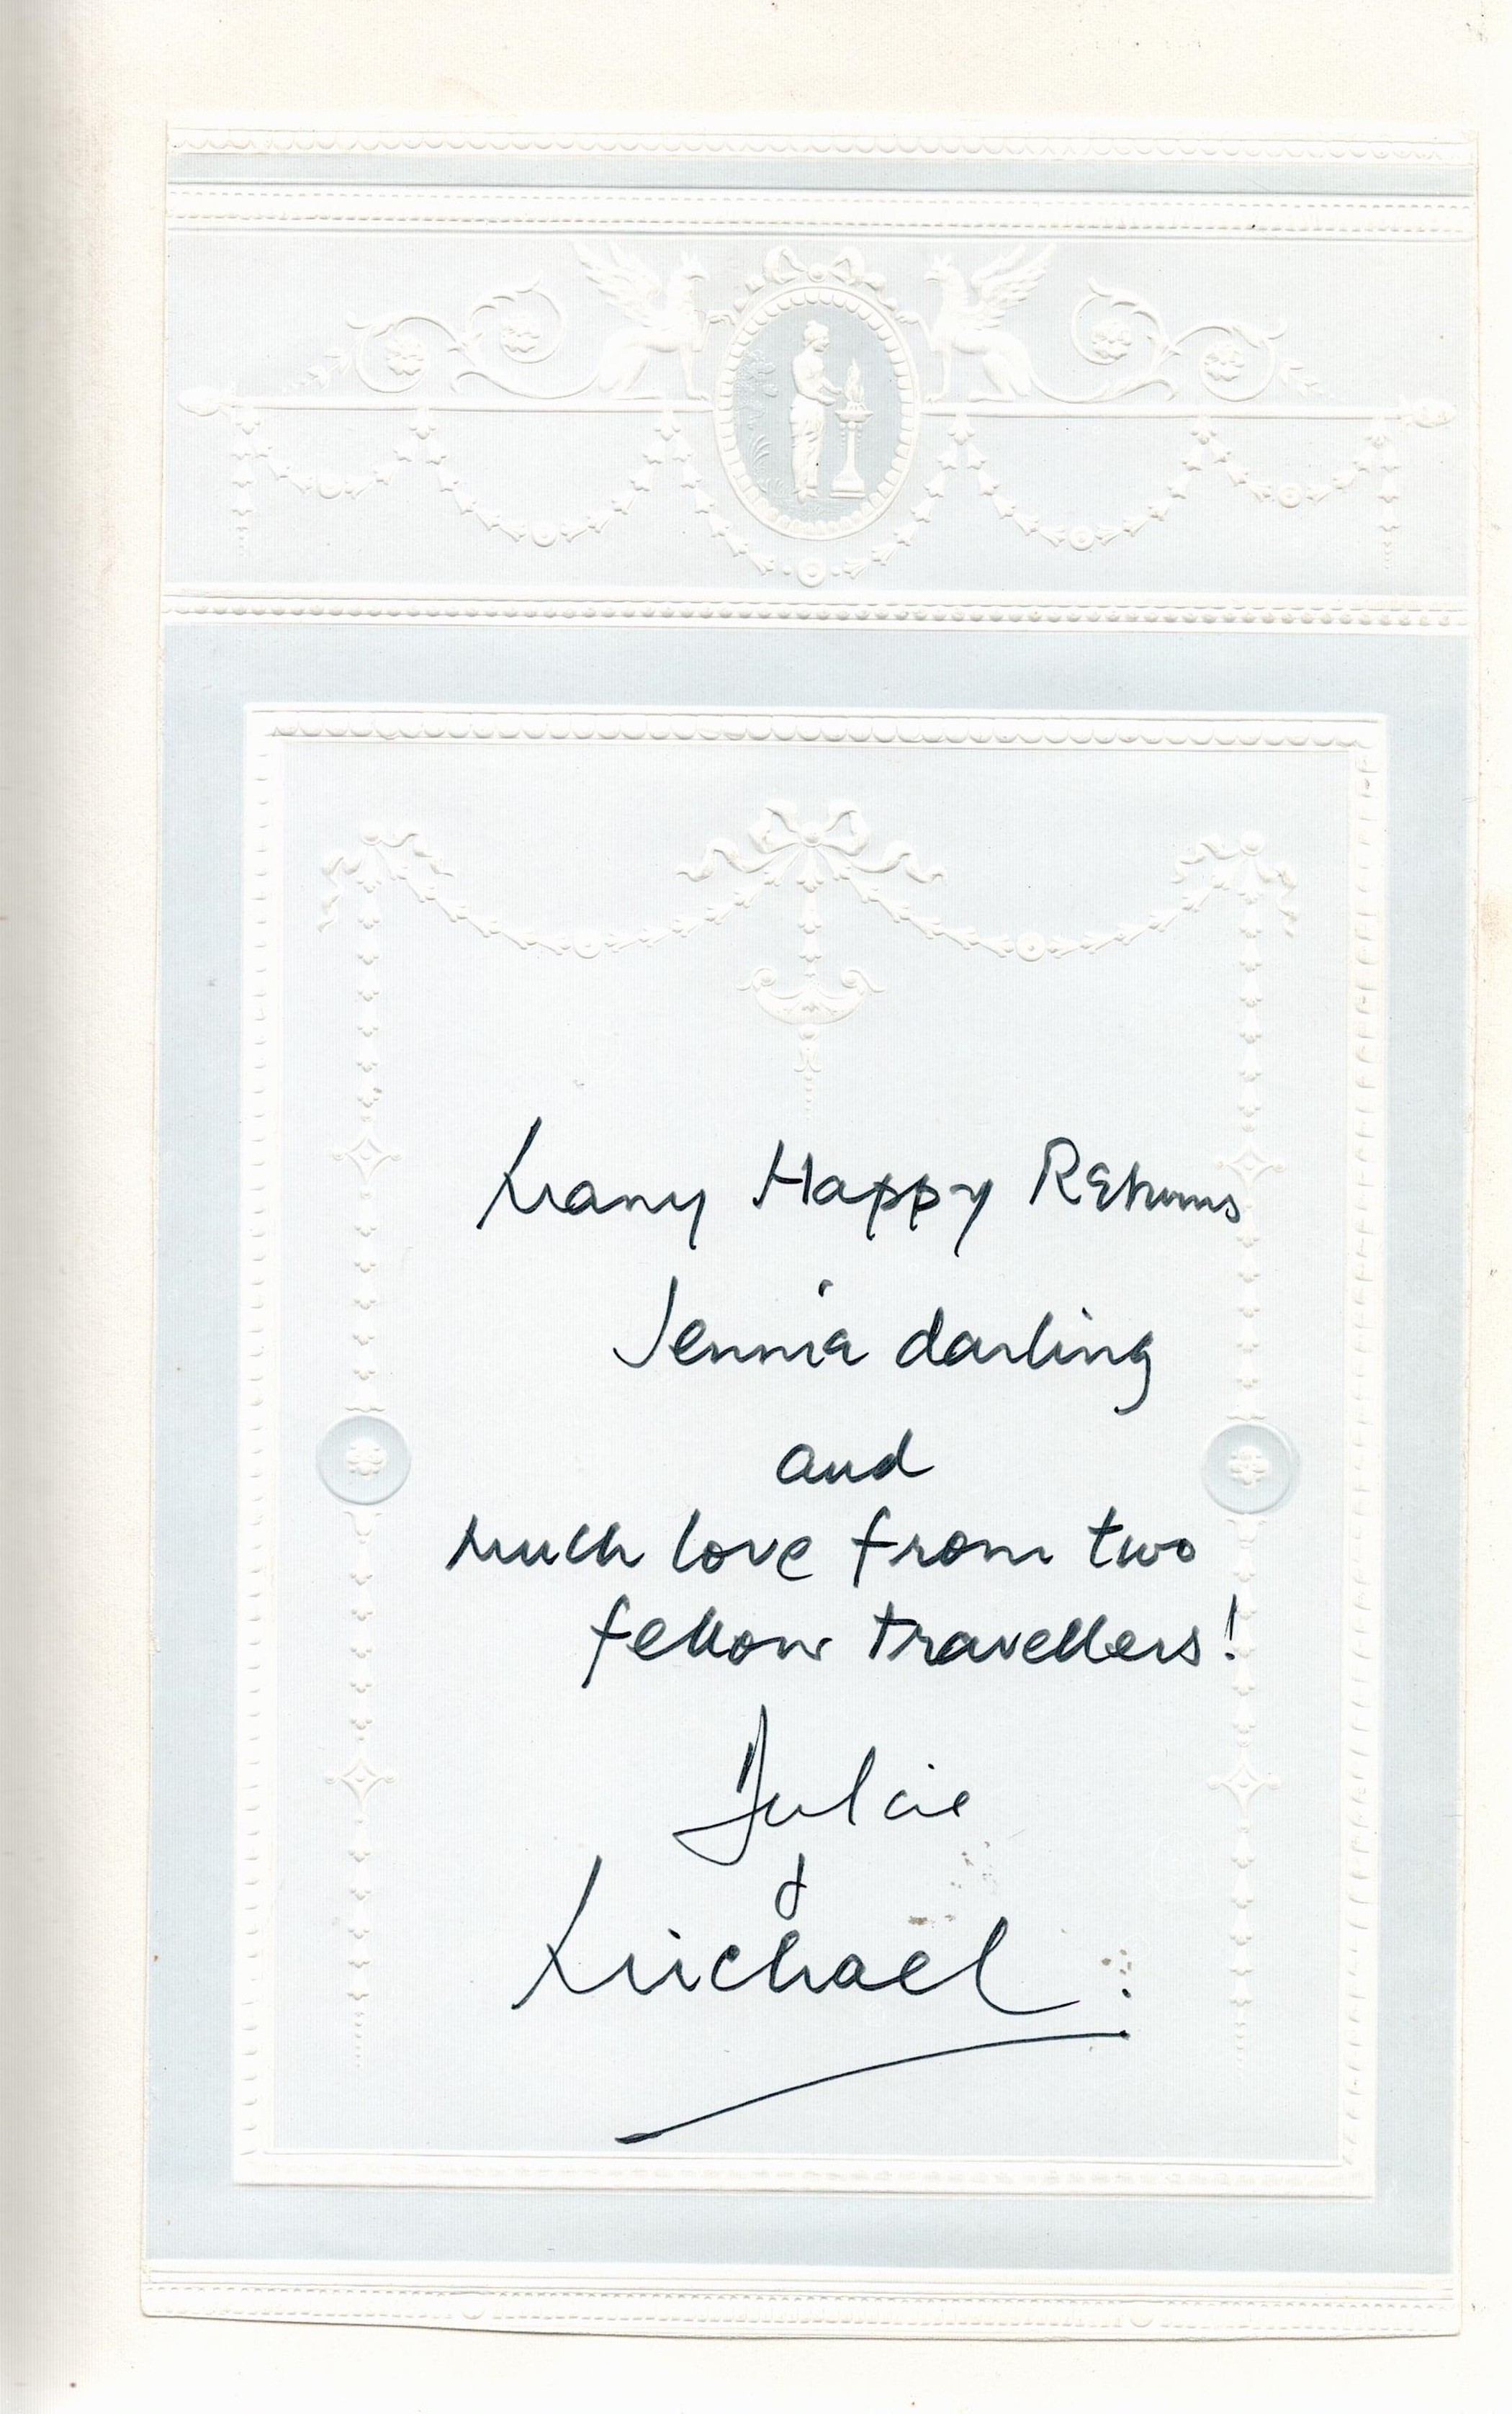 Many Happy Returns
Jennie darling
and
much love from two
fellow travellers!
Dulcie
&
Michael.